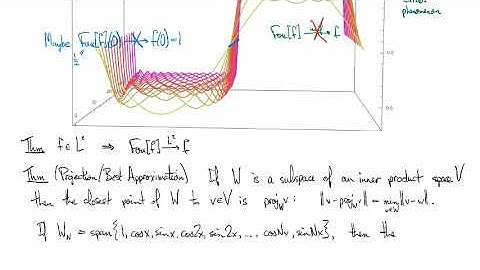 phenomenon
Maybe Fou[f](0) ↛ f(0)=1
½
Fou[f] → f
Thm f∈L² ⇒ Fou[f] →^{L²} f
Thm (Projection/Best Approximation) If W is a subspace of an inner product space V
then the closest point of W to v∈V is proj_W v: ‖v-proj_W v‖ = min_{w∈W}‖v-w‖.
If W_N = span{1, cosx, sinx, cos2x, sin2x, ... cosNx, sinNx}, then the